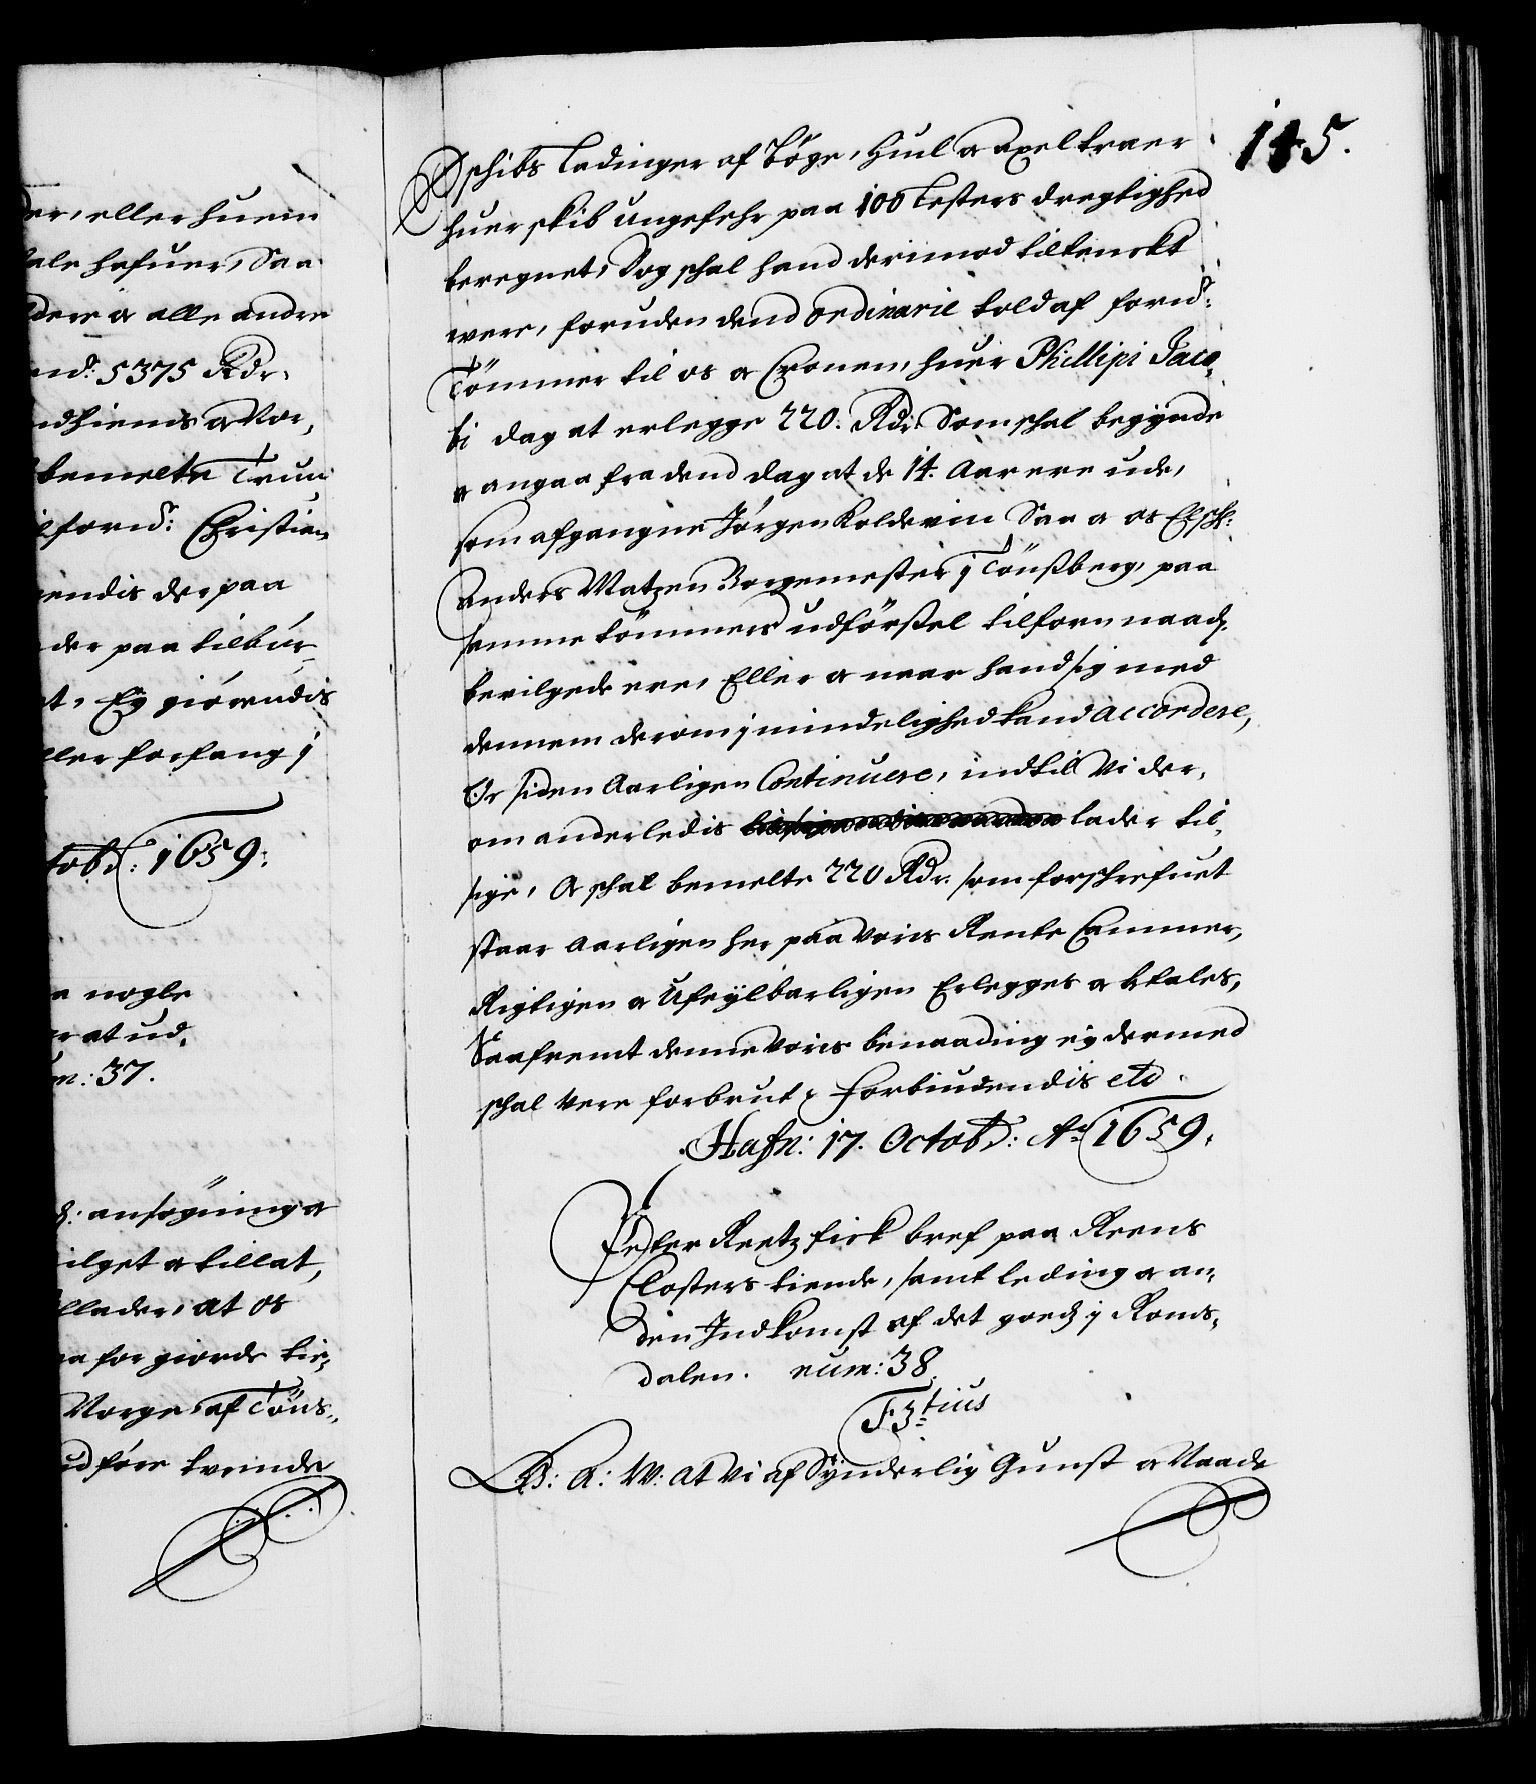 der, eller huem
tale hafuer, Saa
dere och alle andre
nd: 5375 Rdr.
ndhiems och Vor,
bemelte Trun
forn: Christian
endis der paa
der paa tilbúr
et, Ey giörendis
ller forfang j
tobr: 1659:
a nogle
at ud,
m: 37.
ansögning och
ilget och tillat,
llader, at os
a for giorde tie,
Norge af Töns,
udföre trende
145.
schibs Ladinger af Böge, Hiul och axeltræer
huer skib ungefehr paa 100 Lesters dregtighed
beregnet, Dog schal hand derimod tiltenckt
were, foruden dend ordinarie told af fornd:
Tömmer til os och Cronen, huer Phillipi Jaco,
bi dag at erlegge 220. Rdr. Som schal begynde
och angaa fra dend dag at de 14. Aar ere ude,
som afgangne Jörgen Koldevin Saa och os Elsch:
Anders Matzen Borgemester j Tönßberg, paa
samme tömmers udförßel tilforn naad,
bevilgede ere, Eller och naar hand sig med
dennem derom j mindelighed kand accordere,
Och siden Aarligen Continuere, indtil Vi der,
om anderledis lader til,
sige, Och schal bemelte 220 Rdr. som forschrefuet
staar Aarligen her paa voris Rente Cammer,
Rigtigen och Ufeylbarligen Erlegges och btales,
Saafremt denne Voris benaading ey dermed
schal Vere forbrut, Forbiudendis etc.
Hafn: 17. Octobr: Ao 1659.
Peter Reetz fick bref paa Reens
Closters tiende, samt leding och an,
den Indkomst af det goedz j Roms,
dalen. num: 38.
F 3tius
G: A: W: At Vi af Synderlig Gunst och Naade